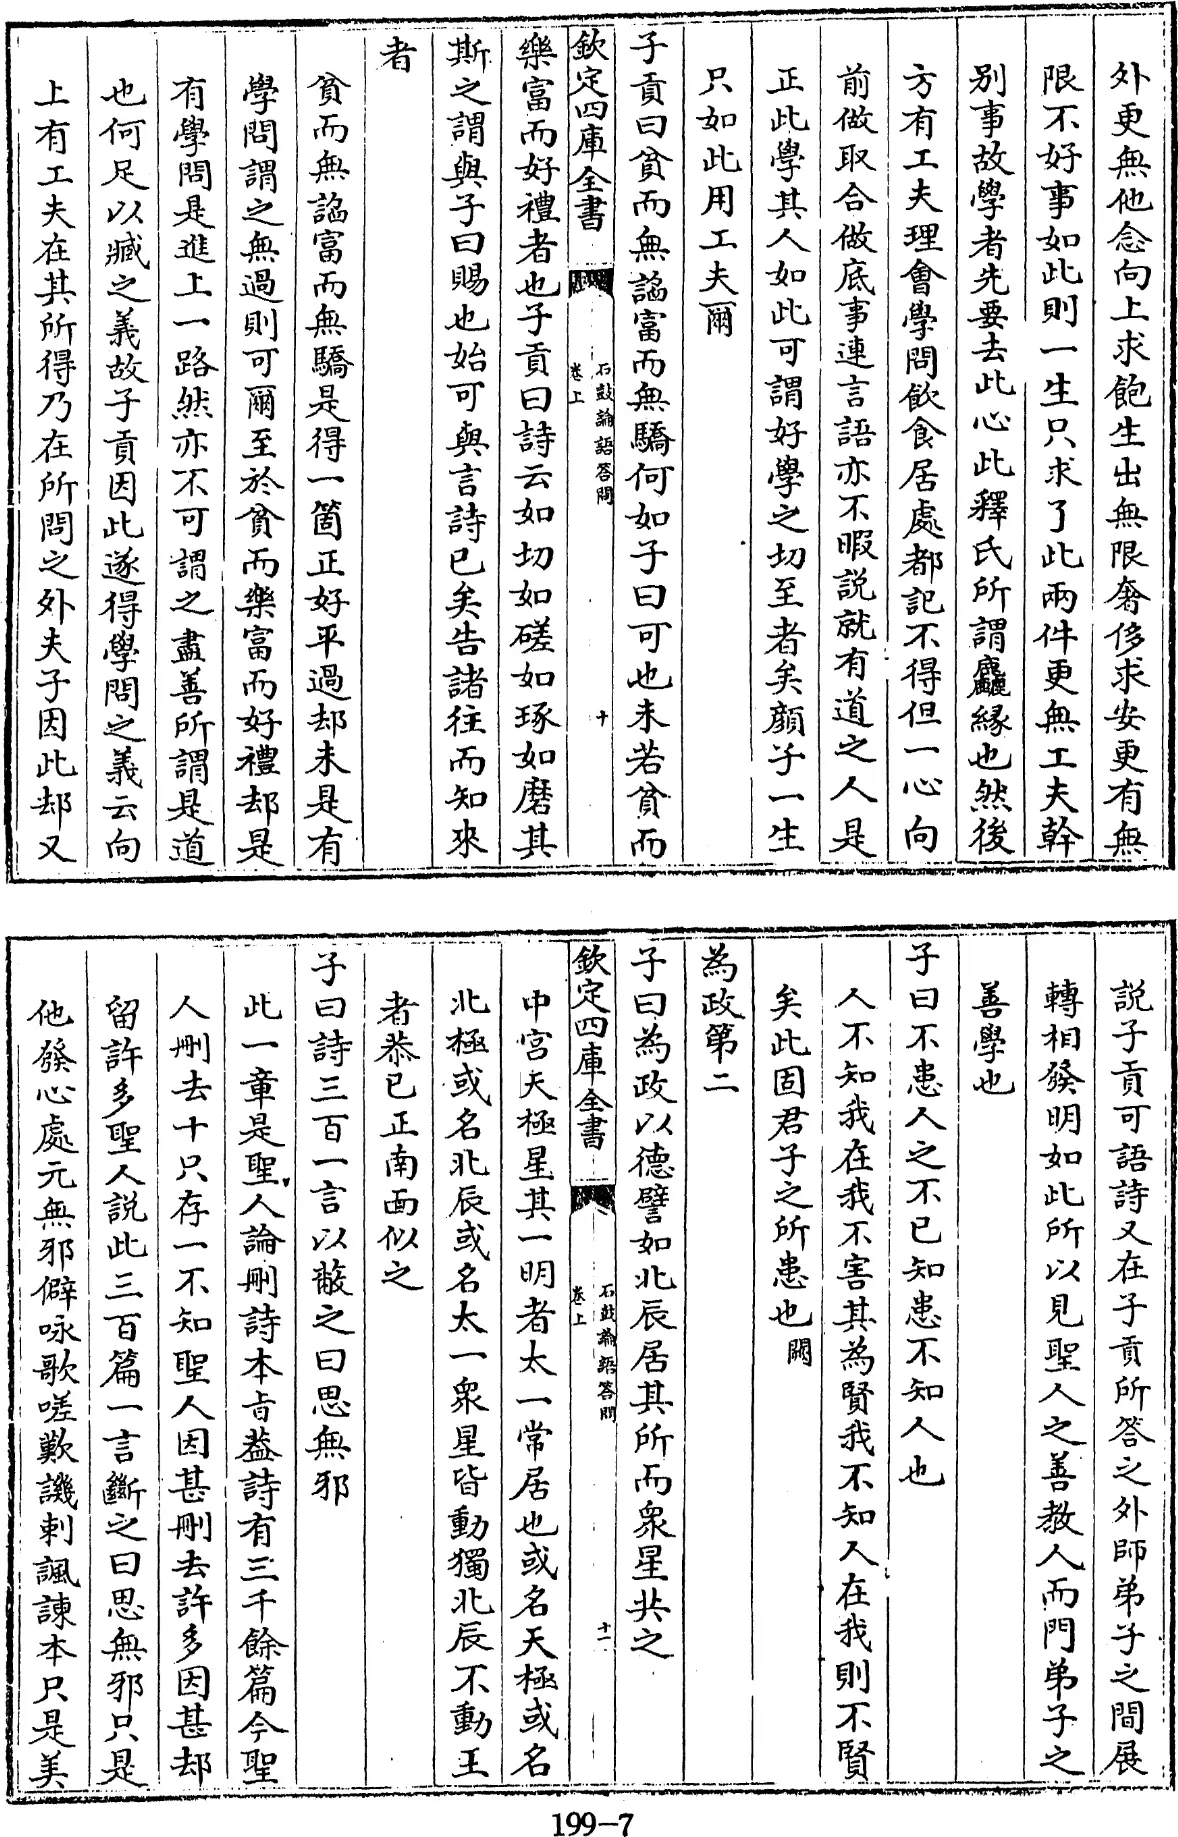 外更無他念向上求飽生出無限奢侈求安更有無
限不好事如此則一生只求了此兩件更無工夫幹
别事故學者先要去此心此釋氏所謂麤緣也然後
方有工夫理會學問飲食居處都記不得但一心向
前做取合做底事連言語亦不暇説就有道之人是
正此學其人如此可謂好學之切至者矣顔子一生
只如此用工夫爾
子貢曰貧而無諂富而無驕何如子曰可也未若貧而
欽定四庫全書
石鼓論語答問
卷上
十
樂富而好禮者也子貢曰詩云如切如磋如琢如磨其
斯之謂與子曰賜也始可與言詩已矣告諸往而知來
者
貧而無諂富而無驕是得一箇正好平過却未是有
學問謂之無過則可爾至於貧而樂富而好禮却是
有學問是進上一路然亦不可謂之盡善所謂是道
也何足以臧之義故子貢因此遂得學問之義云向
上有工夫在其所得乃在所問之外夫子因此却又
説子貢可語詩又在子貢所答之外師弟子之間展
轉相發明如此所以見聖人之善教人而門弟子之
善學也
子曰不患人之不已知患不知人也
人不知我在我不害其為賢我不知人在我則不賢
矣此固君子之所患也闕
為政第二
子曰為政以德譬如北辰居其所而衆星共之
欽定四庫全書
石鼓論語答問
卷上
十一
中宫天極星其一明者太一常居也或名天極或名
北極或名北辰或名太一衆星皆動獨北辰不動王
者恭已正南面似之
子曰詩三百一言以蔽之曰思無邪
此一章是聖人論刪詩本旨葢詩有三千餘篇今聖
人刪去十只存一不知聖人因甚刪去許多因甚却
留許多聖人説此三百篇一言斷之曰思無邪只是
他發心處元無邪僻咏歌嗟歎譏刺諷諫本只是美
199-7